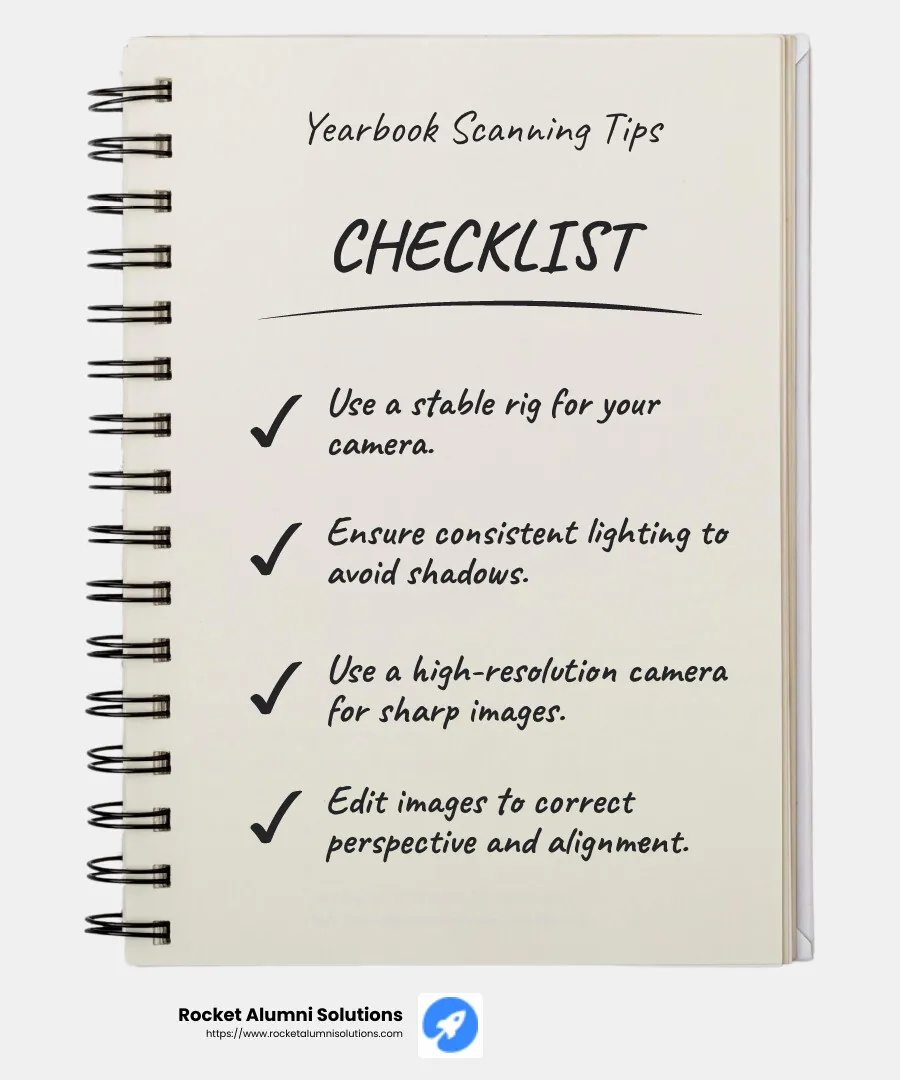 Yearbook Scanning Tips
CHECKLIST
Use a stable rig for your
camera.
Ensure consistent lighting to
avoid shadows.
Use a high-resolution camera
for sharp images.
Edit images to correct
perspective and alignment.
Rocket Alumni Solutions
https://www.rocketalumnisolutions.com